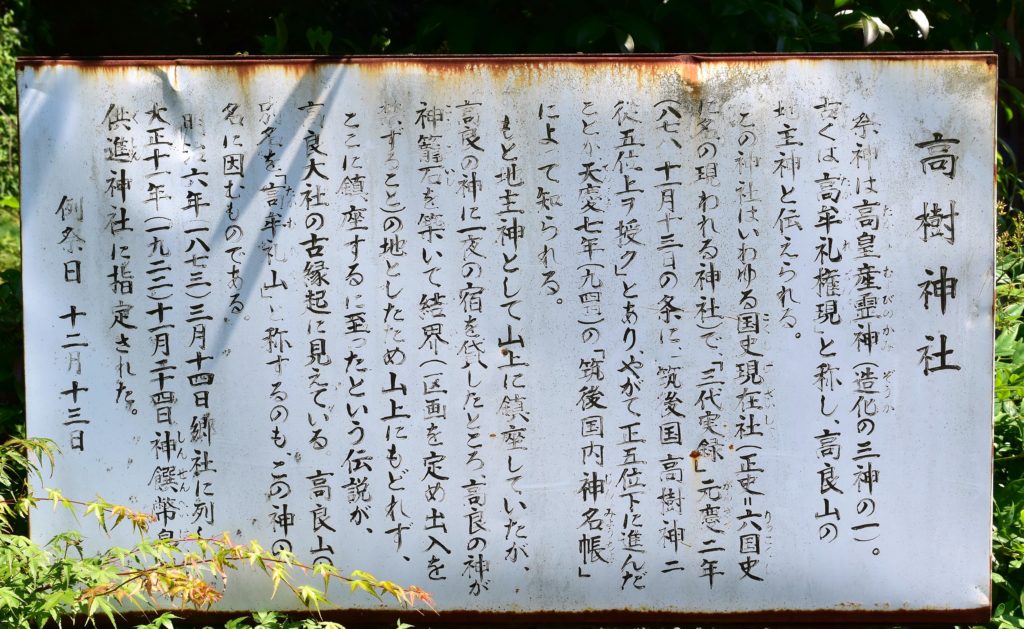 高樹神社
祭神は高皇産霊神(造化の三神の一)。
古くは「高牟礼権現」と称し、高良山の
地主神と伝えられる。
この神社はいわゆる国史現在社(正史=六国史
に名の現われる神社)で、「三代実録」元慶二年
(八七八)十一月十三日の条に「筑後国高樹神ニ
従五位上ヲ授ク」とありやがて正五位下に進んだ
ことが天慶七年(九四四)の「筑後国内神名帳」
によって知られる。
もと地主神として山上に鎮座していたが、
高良の神に一夜の宿を貸したところ、高良の神が
神籠石を築いて結界(区画を定め出入を
禁ずること)の地としたため山上にもどれず、
ここに鎮座するに至ったという伝説が、
高良大社の古縁起に見えている。高良山の
別名を「高牟礼山」と称するのも、この神の
名に因むものである。
明治六年(一八七三)三月十四日郷社に列
大正十一年(一九二二)十一月二十四日神饌幣帛
供進神社に指定された。
例祭日 十二月十三日